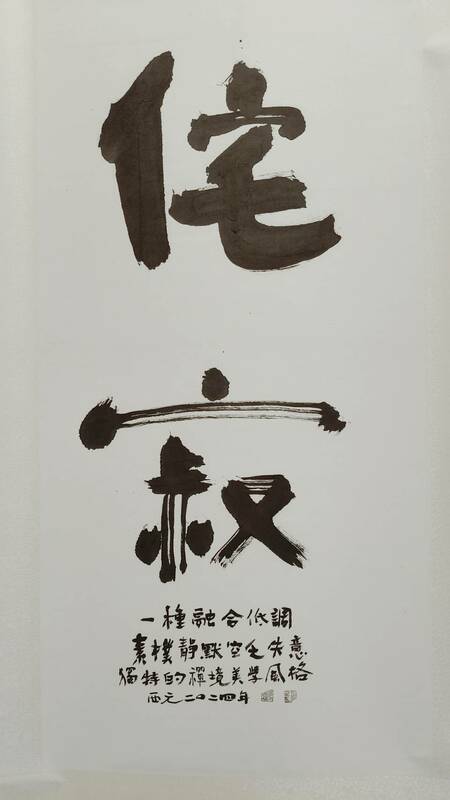 侘
寂
一種融合低調
素樸靜默空乏失意
獨特的禪境美學風格
西元二〇二四年